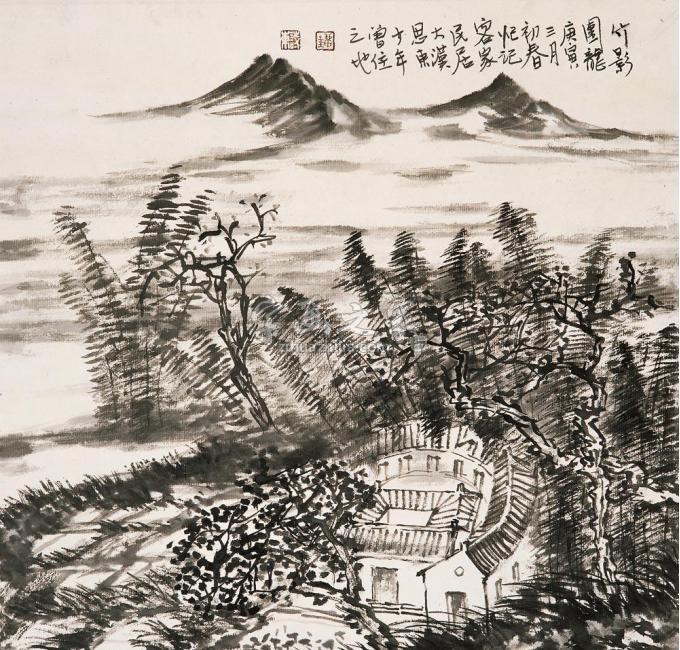 竹影
圍龍
庚寅
三月
初春
客家
民居
大漢
十年
曾住
之地